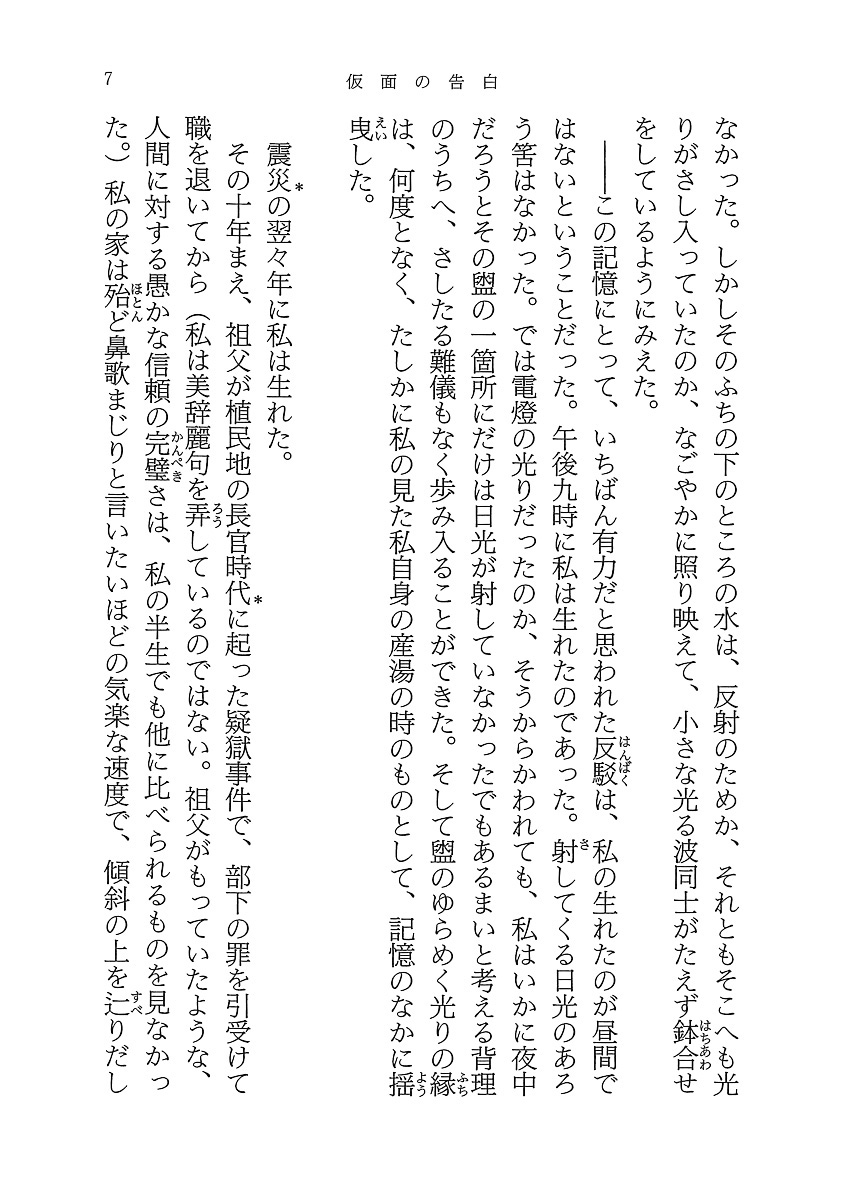 7
仮面の告白
なかった。しかしそのふちの下のところの水は、反射のためか、それともそこへも光
りがさし入っていたのか、なごやかに照り映えて、小さな光る波同士がたえず鉢合せ
はちあわ
をしているようにみえた。
――この記憶にとって、いちばん有力だと思われた反駁は、私の生れたのが昼間で
はんばく
はないということだった。午後九時に私は生れたのであった。射してくる日光のあろ
さ
う筈はなかった。では電燈の光りだったのか、そうからかわれても、私はいかに夜中
だろうとその盥の一箇所にだけは日光が射していなかったでもあるまいと考える背理
のうちへ、さしたる難儀もなく歩み入ることができた。そして盥のゆらめく光りの縁
ふち
は、何度となく、たしかに私の見た私自身の産湯の時のものとして、記憶のなかに揺
よう
曳した。
えい
震災*の翌々年に私は生れた。
その十年まえ、祖父が植民地の長官時代*に起った疑獄事件で、部下の罪を引受けて
職を退いてから（私は美辞麗句を弄しているのではない。祖父がもっていたような、
ろう
人間に対する愚かな信頼の完璧さは、私の半生でも他に比べられるものを見なかっ
かんぺき
た。）私の家は殆ど鼻歌まじりと言いたいほどの気楽な速度で、傾斜の上を辷りだし
ほとん
すべ